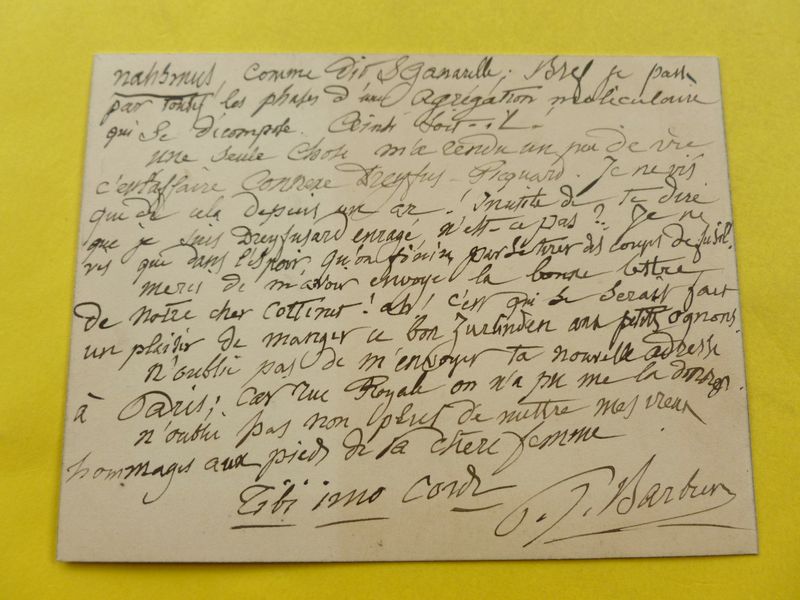 nahsmus, comme dit Sganarelle. Bref je passe
par toutes les phases d'une agrégation moliculaire
qui se décompose. Ainsi soit-il.
Une seule chose m'a rendu un peu de vie
c'est l'affaire connexe Dreyfus-Picquard. Je ne vis
que de cela depuis un an! Inutile de te dire
que je suis Dreyfusard enragé, n'est-ce pas? Je ne
vis que dans l'espoir qu'on finira par se tirer des coups de fusil.
Merci de m'avoir envoyé la bonne lettre
de notre cher Cottinet! Ah! c'est qui se serait fait
un plaisir de manger ce bon Zurlinden aux petits ognons.
N'oublie pas de m'envoyer ta nouvelle adresse
à Paris; car rue Royale on n'a pu me la donner.
N'oublie pas non plus de mettre mes vieux
hommages aux pieds de ta chère femme
Tibi imo corde
J. Barbier